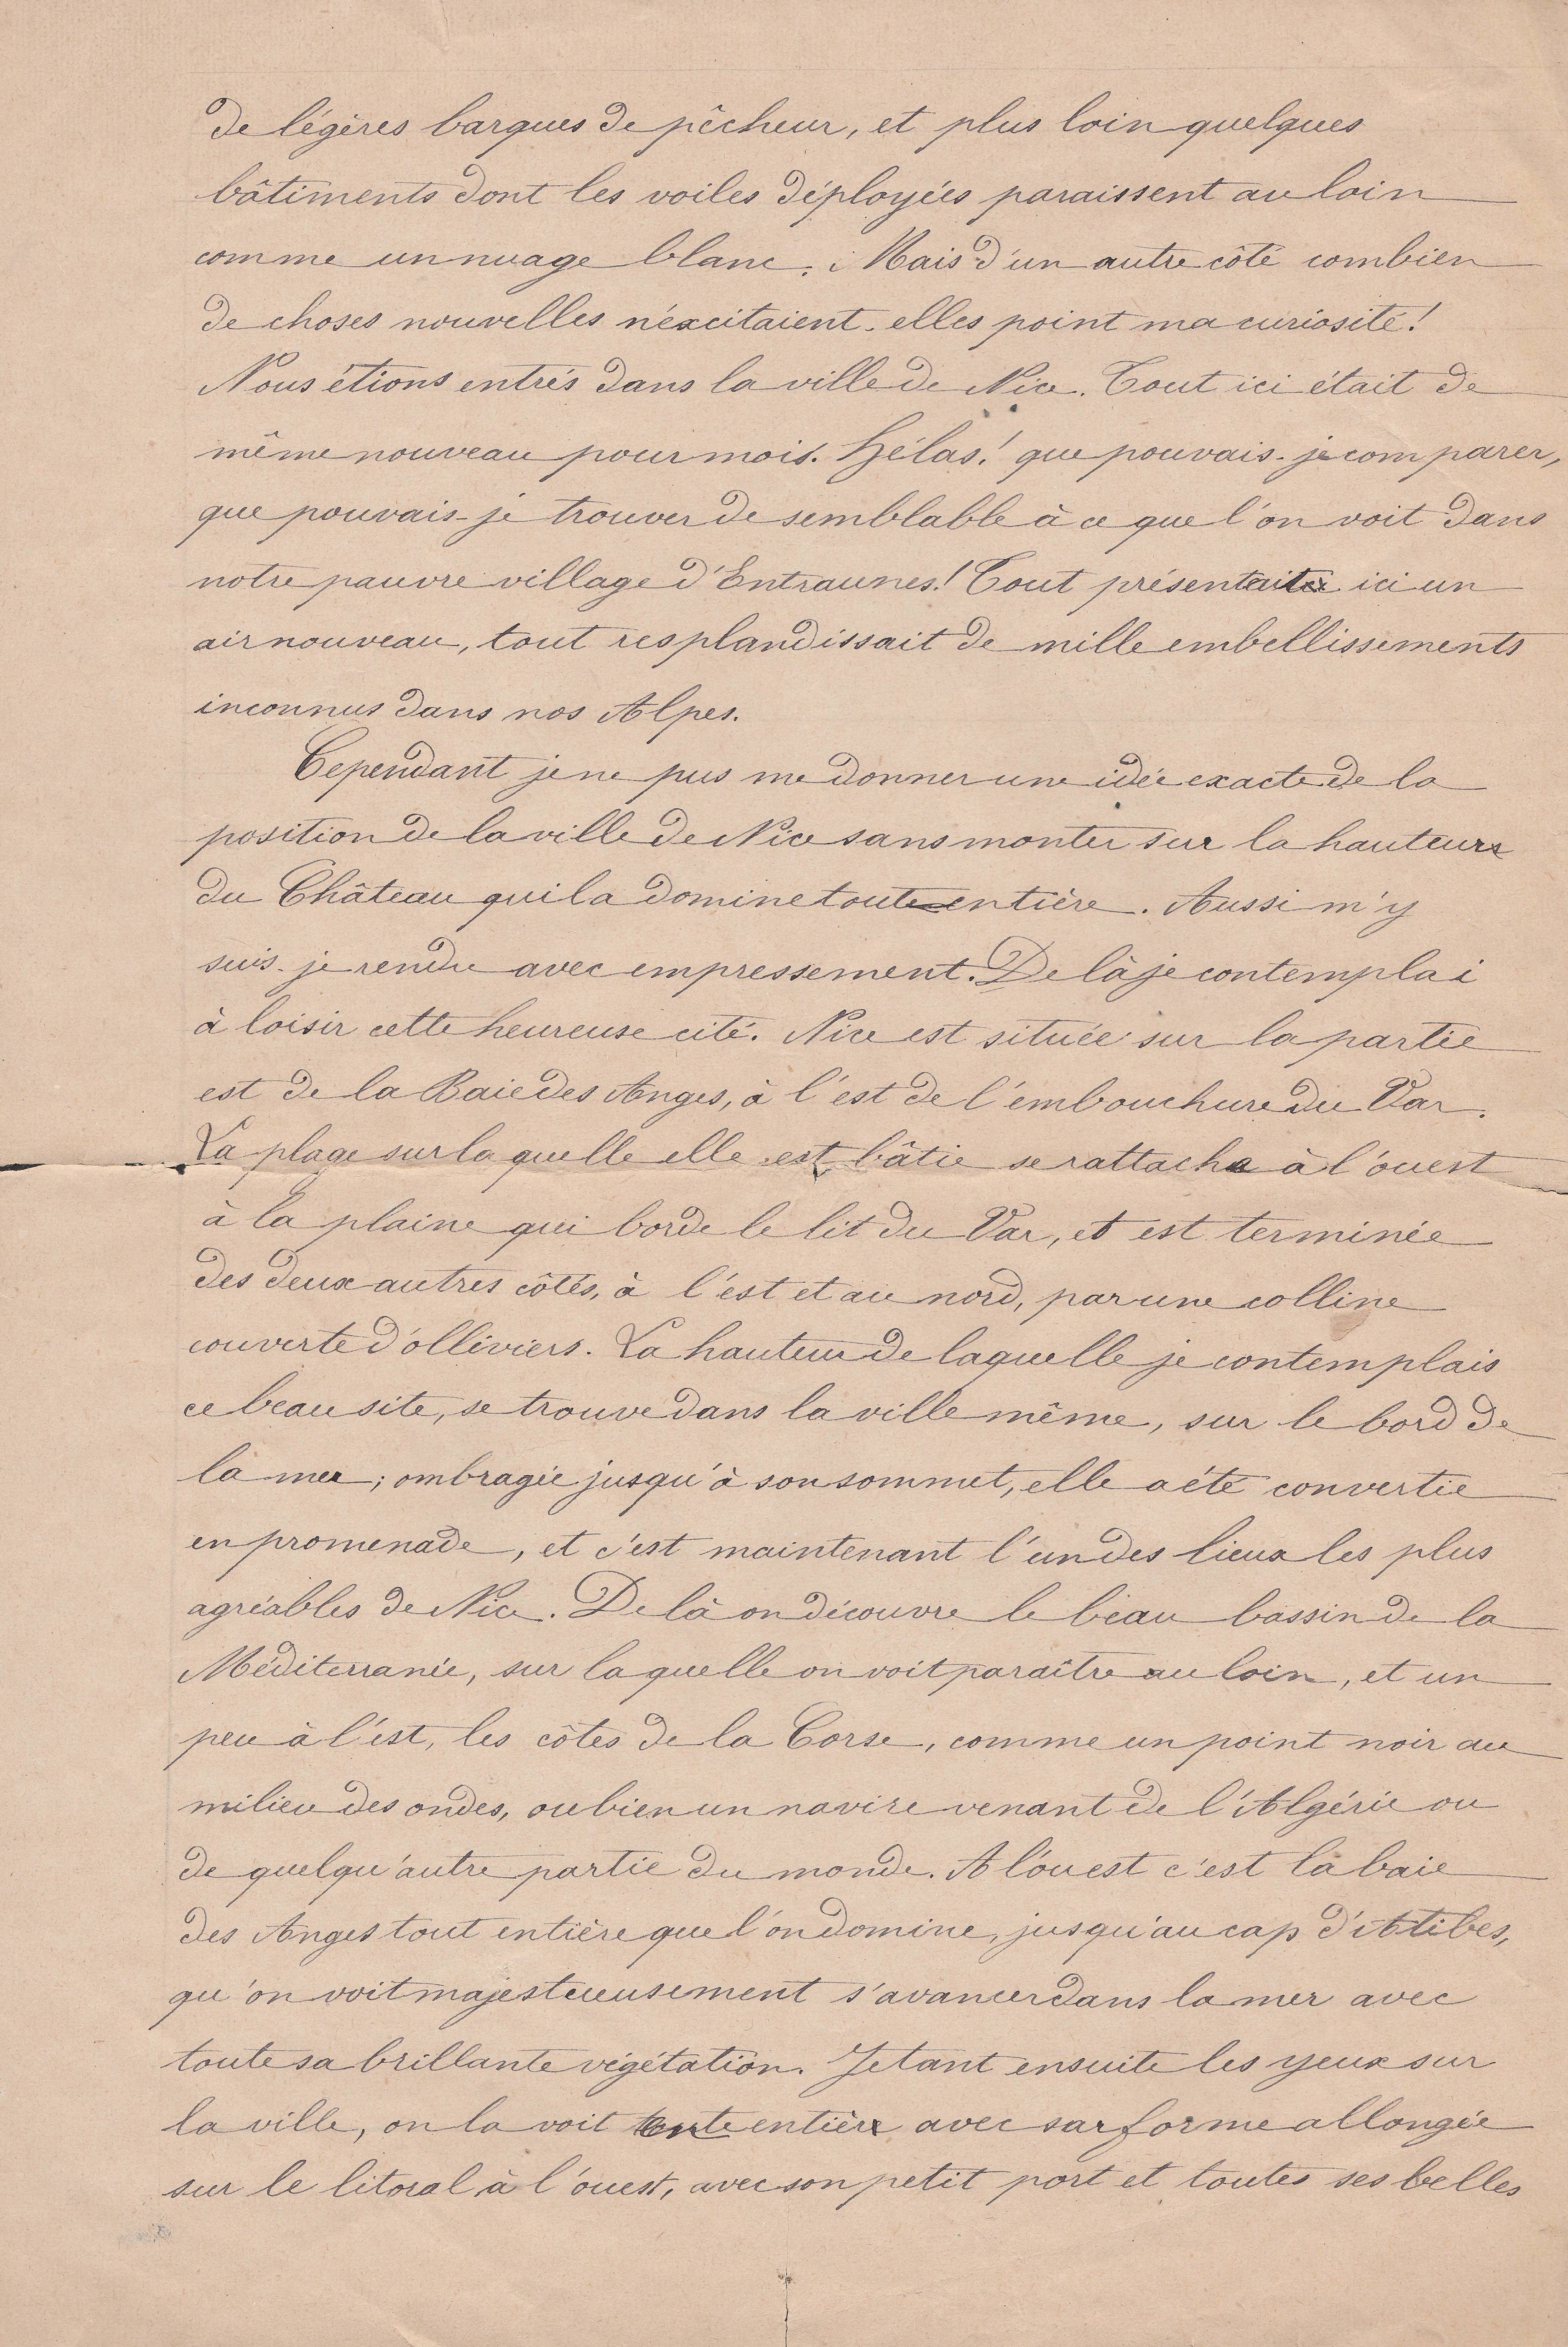 de légères barques de pêcheur, et plus loin quelques
bâtiments dont les voiles déployées paraissent au loin
comme un nuage blanc. Mais d'un autre côté combien
de choses nouvelles n'éxcitaient-elles point ma curiosité!
Nous étions entrés dans la ville de Nice. Tout ici était de
même nouveau pour mois. Hélas! que pouvais-je comparer,
que pouvais-je trouver de semblable à ce que l'on voit dans
notre pauvre village d'Entraunes! Tout présentait ici un
air nouveau, tout resplandissait de mille embellissements
inconnus dans nos Alpes.
Cependant je ne pus me donner une idée exacte de la
position de la ville de Nice sans monter sur la hauteur
du Château qui la domine toute entière. Aussi m'y
suis-je rendu avec empressement. De là je contemplai
à loisir cette heureuse cité. Nice est située sur la partie
est de la Baie des Anges, à l'est de l'embouchure du Var.
La plage sur laquelle elle est bâtie se rattache à l'ouest
à la plaine qui borde le lit du Var, et est terminée
des deux autres côtés, à l'est et au nord, par une colline
couverte d'olliviers. La hauteur de laquelle je contemplais
ce beau site, se trouve dans la ville même, sur le bord de
la mer; ombragée jusqu'à son sommet, elle a été convertie
en promenade, et c'est maintenant l'un des lieux les plus
agréables de Nice. De là on découvre le beau bassin de la
Méditerranée, sur laquelle on voit paraître au loin, et un
peu à l'est, les côtes de la Corse, comme un point noir au
milieu des ondes, ou bien un navire venant de l'Algérie ou
de quelqu'autre partie du monde. A l'ouest c'est la baie
des Anges tout entière que l'on domine, jusqu'au cap d'Atibes,
qu'on voit majestueusement s'avancer dans la mer avec
toute sa brillante végétation. Jetant ensuite les yeux sur
la ville, on la voit toute entière avec sa forme allongée
sur le litoral à l'ouest, avec son petit port et toutes ses belles